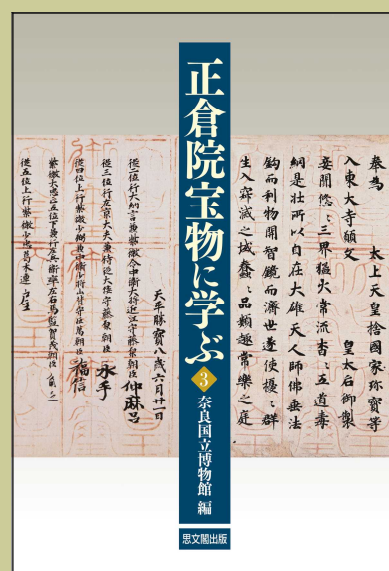 正倉院宝物に学ぶ
3
奈良国立博物館 編
思文閣出版
奉為 太上天皇捨國家珍寶等
入東大寺願文 皇太后御製
妾聞悠々三界猛火常流杳々五道毒
網是壮所以自在大雄天人師佛垂法
鈎而利物開智鏡而濟世遂使擾々群
生入寂滅之域蠢々品類趣常樂之庭
天平勝寳八歳六月廿一日
從二位行大納言兼紫微令中衛大將近江守藤原朝臣仲麻呂
從三位行左京大夫兼侍從大倭守藤原朝臣永手
從四位上行紫微少弼兼中衛少將山背守巨萬朝臣福信
紫微大忠正五位下兼行左兵衛率左右馬監賀茂朝臣角足
從五位上行紫微少忠葛木連戸主